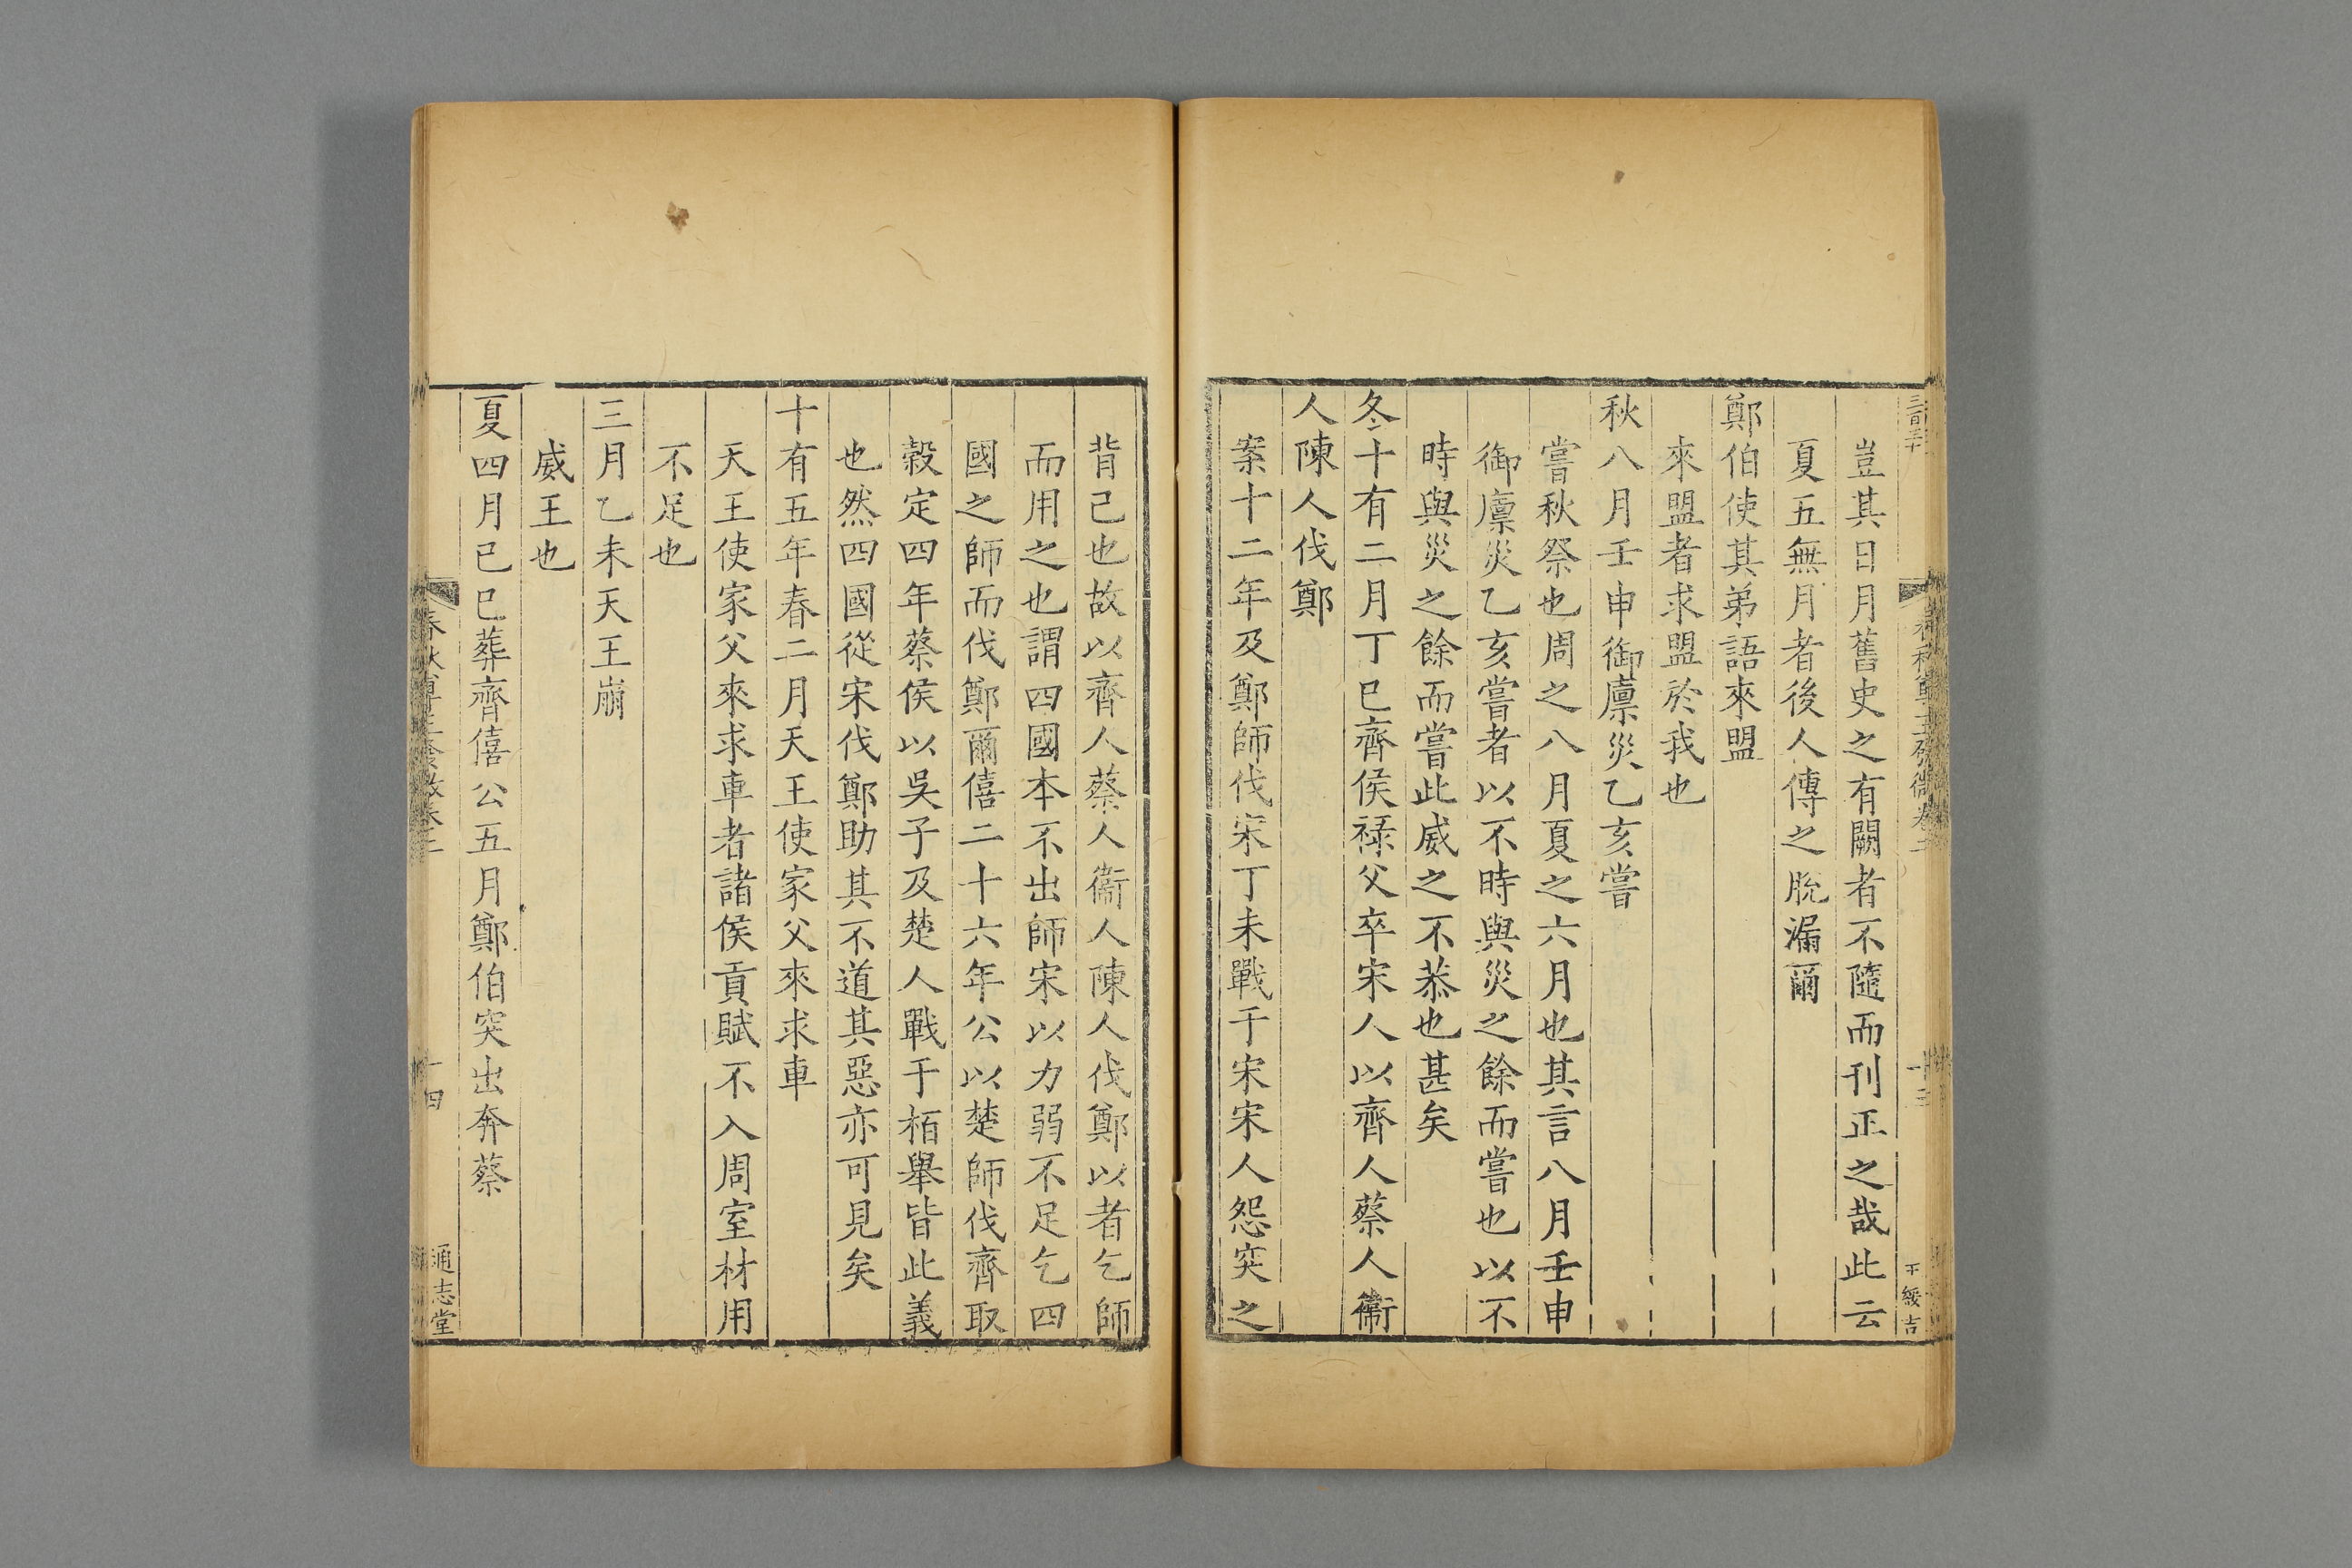 豈其日月舊史之有闕者不隨而刊正之哉此云
夏五無月者後人傳之脫漏爾
鄭伯使其弟語來盟
來盟者求盟於我也
秋八月壬申御廩災乙亥嘗
嘗秋祭也周之八月夏之六月也其言八月壬申
御廩災乙亥嘗者以不時與災之餘而嘗也以不
時與災之餘而嘗此威之不恭也甚矣
冬十有二月丁巳齊侯祿父卒宋人以齊人蔡人衞
人陳人伐鄭
案十二年及鄭師伐宋丁未戰于宋宋人怨突之
背己也故以齊人蔡人衞人陳人伐鄭以者乞師
而用之也謂四國本不出師宋以力弱不足乞四
國之師而伐鄭爾僖二十六年公以楚師伐齊取
穀定四年蔡侯以吳子及楚人戰于栢舉皆此義
也然四國從宋伐鄭助其不道其惡亦可見矣
十有五年春二月天王使家父來求車
天王使家父來求車者諸侯貢賦不入周室材用
不足也
三月乙未天王崩
威王也
夏四月已巳葬齊僖公五月鄭伯突出奔蔡
十四
通志堂